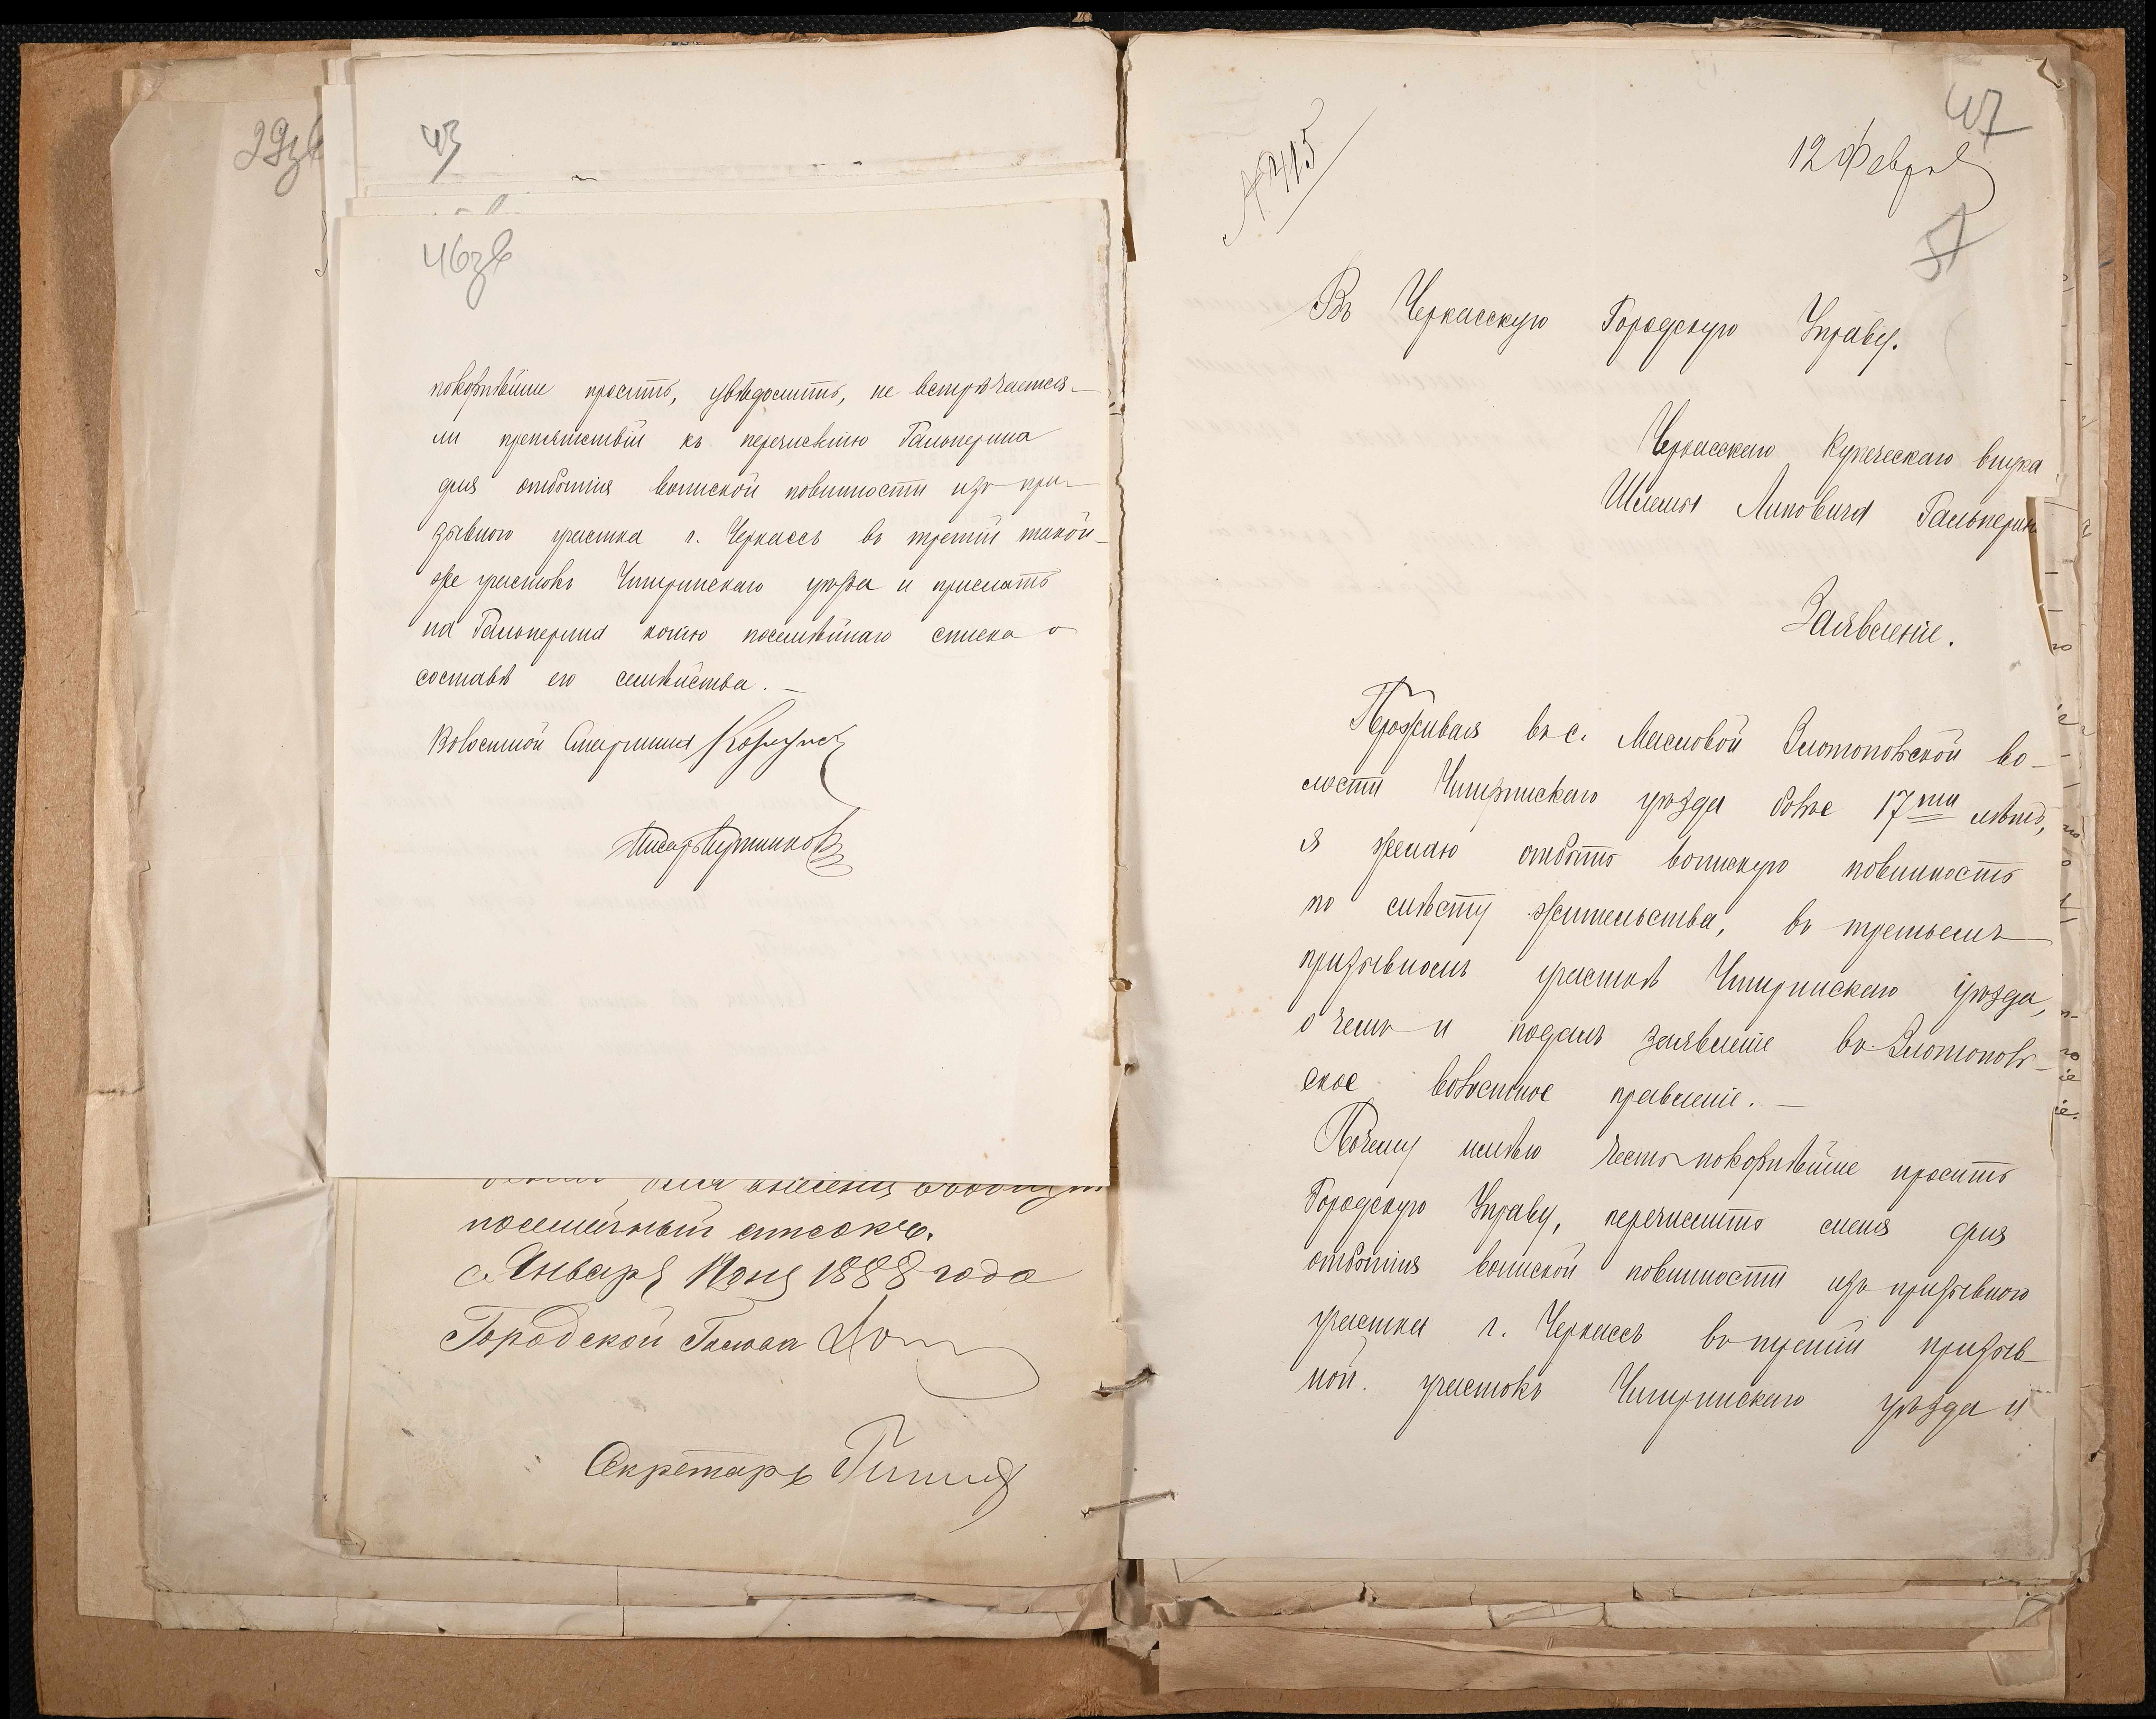 29зв
43
46зв
покорнѣйше просить, увѣдомить, не встрѣчается-
ли препятствій къ перечисленію Гальперина
для отбытія воинской повинности изъ при-
зывного участка г. Черкассъ въ третій такой-
же участокъ Чигиринскаго уѣзда и прислать
на Гальперина копію посемѣйнаго списка о
составѣ его семѣйства. —
Волостной Старшина
Писарь
посемейный списокъ.
Января 1888 года
Городской Голова
Секретарь
47
№ 415
12 Февраля
57
Въ Черкасскую Городскую Управу.
Черкасскаго Купеческаго внука
Шлемы Липовича Гальперин
Заявленіе.
Проживая въ с. Масловой Златопольской во-
лости Чигиринскаго уѣзда болѣе 17ти лѣтъ,
я желаю отбыть воинскую повинность
по мѣсту жительства, въ третьемъ
призывномъ участкѣ Чигиринскаго уѣзда,
о чемъ и подалъ заявленіе въ Златополь-
ское волостное правленіе. —
Почему имѣю честь покорнѣйше просить
Городскую Управу, перечислить меня для
отбытія воинской повинности изъ призывного
участка г. Черкассъ въ третій призыв-
ной участокъ Чигиринскаго уѣзда и